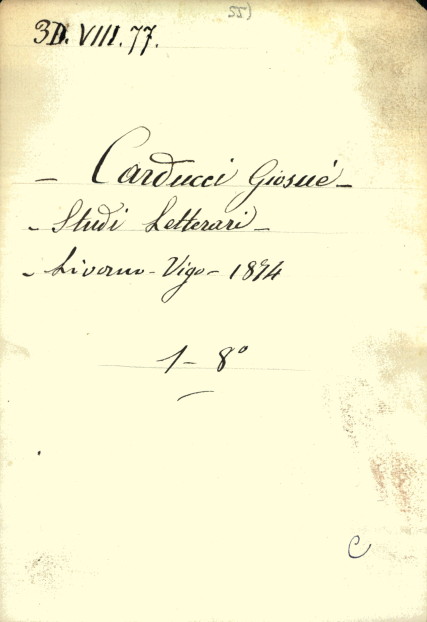 55)
3D. VIII. 77.
– Carducci Giosuè –
– Studi Letterari –
– Livorno – Vigo – 1874
1 – 8°
C